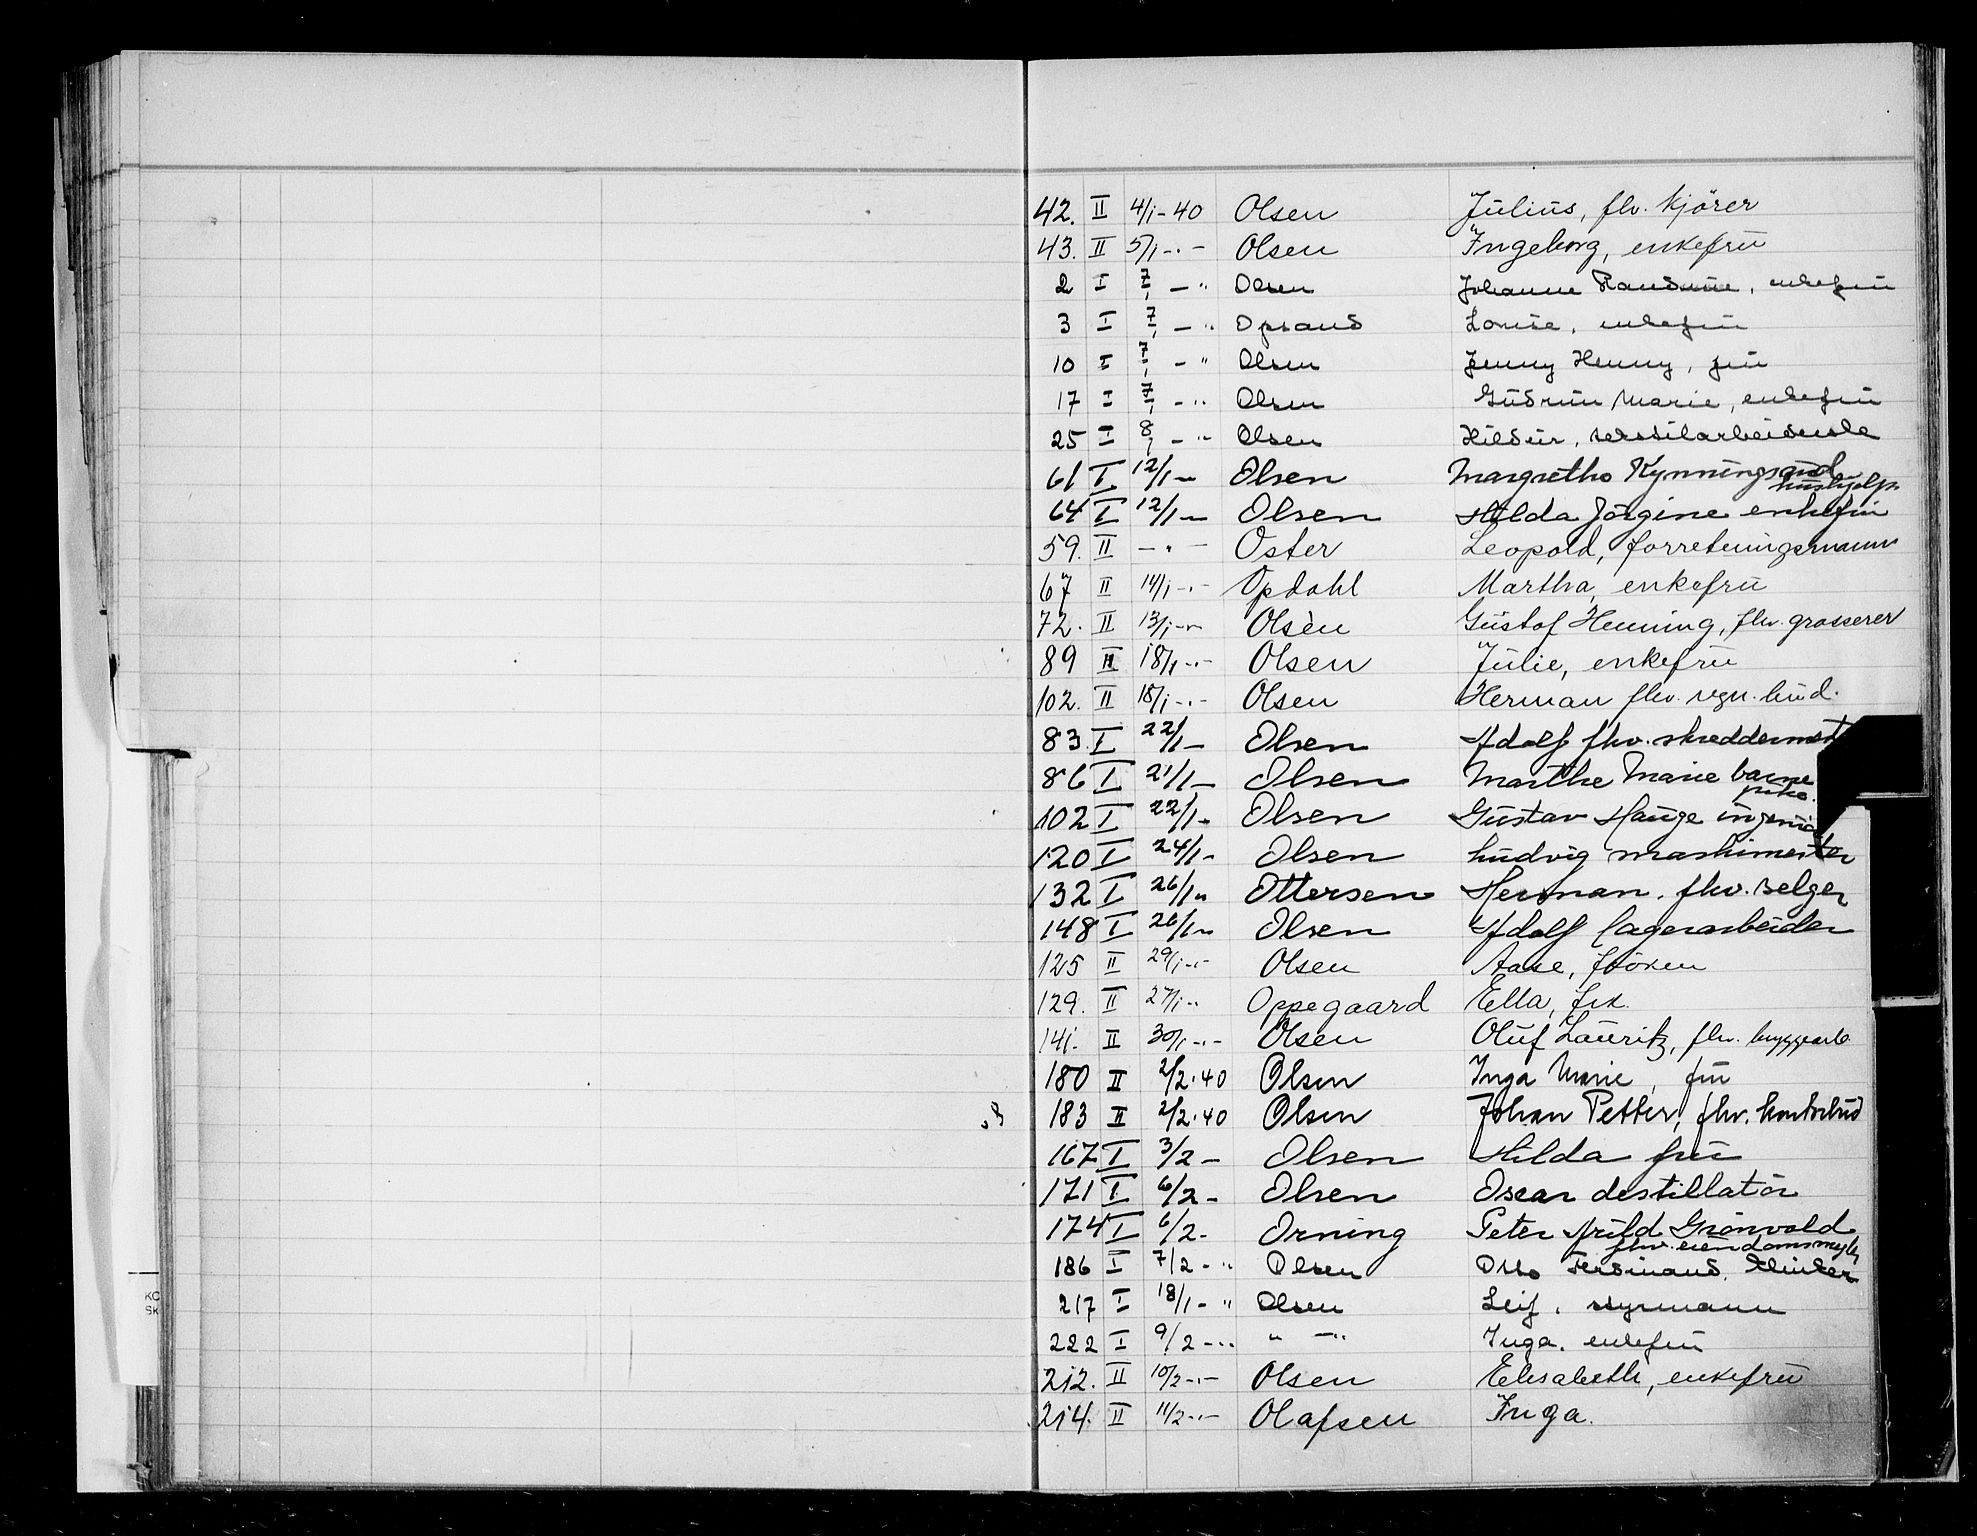 42. II 4/1-40 Olsen Julius, fhv. kjörer
43. II 5/1-"- Olsen Ingeborg, enkefru
2 I 7/1 - " Olsen Johanne Randine, enkefru
3 I 7/1 - " Opsand Louise, enkefru
10 I 7/1 - " Olsen Jenny Henny, fru
17 I 7/1 - " Olsen Gudrun Marie, enkefru
25 I 8/1 - " Olsen Hildur, tekstilarbeiderske
61 I 12/1 - Olsen Margrethe Kynningsrud
hushjelp.
64 I 12/1 - Olsen Hilda Jörgine enkefru
59. II - " - Oster Leopold, forretningsmann
67 II 14/1-"- Opdahl Martha, enkefru
72. II 13/1-"- Olsen Gustof Henning, fhv. grosserer
89 II 18/1-"- Olsen Julie, enkefru
102. II 18/1-"- Olsen Herman fhv. regn. bud.
83. I 22/1- Olsen Adolf fhv. skreddermest
86 I 21/1- Olsen Marthe Marie barne
pike.
102 I 22/1- Olsen Gustav Hauge ingeniö
120 I 24/1- Olsen Ludvig maskimester
132 I 26/1- Ottersen Herman. fhv. selger
148 I 26/1- Olsen Adolf lagerarbeider
125 II 29/1-"- Olsen Aase, fröken
129. II 27/1-" Oppegaard Ella, frk.
141. II 30/1-"- Olsen Oluf Lauritz, fhv. byggearb.
180 II 2/2.40 Olsen Inga Marie, fru
183 II 2/2.40 Olsen Johan Petter, fhv. kontorbud
167 I 3/2 - Olsen Hilda fru
171 I 6/2 - Olsen Oscar destillatör
174 I 6/2- Orning Peter Arild Grönvold
fhv. eiendomsmegl.
186 I 7/2 - " Olsen Otto Ferdinand,
217 I 18/1 - " Olsen Leif, styrmann
222 I 9/2 - " " - " Inga, enkefru
212. II 10/2-"- Olsen Elisabeth, enkefru
214. II 11/2-"- Olafsen Inga.